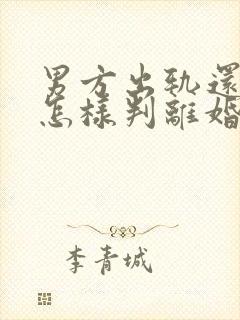 男方出轨還
怎樣判離婚
李青城